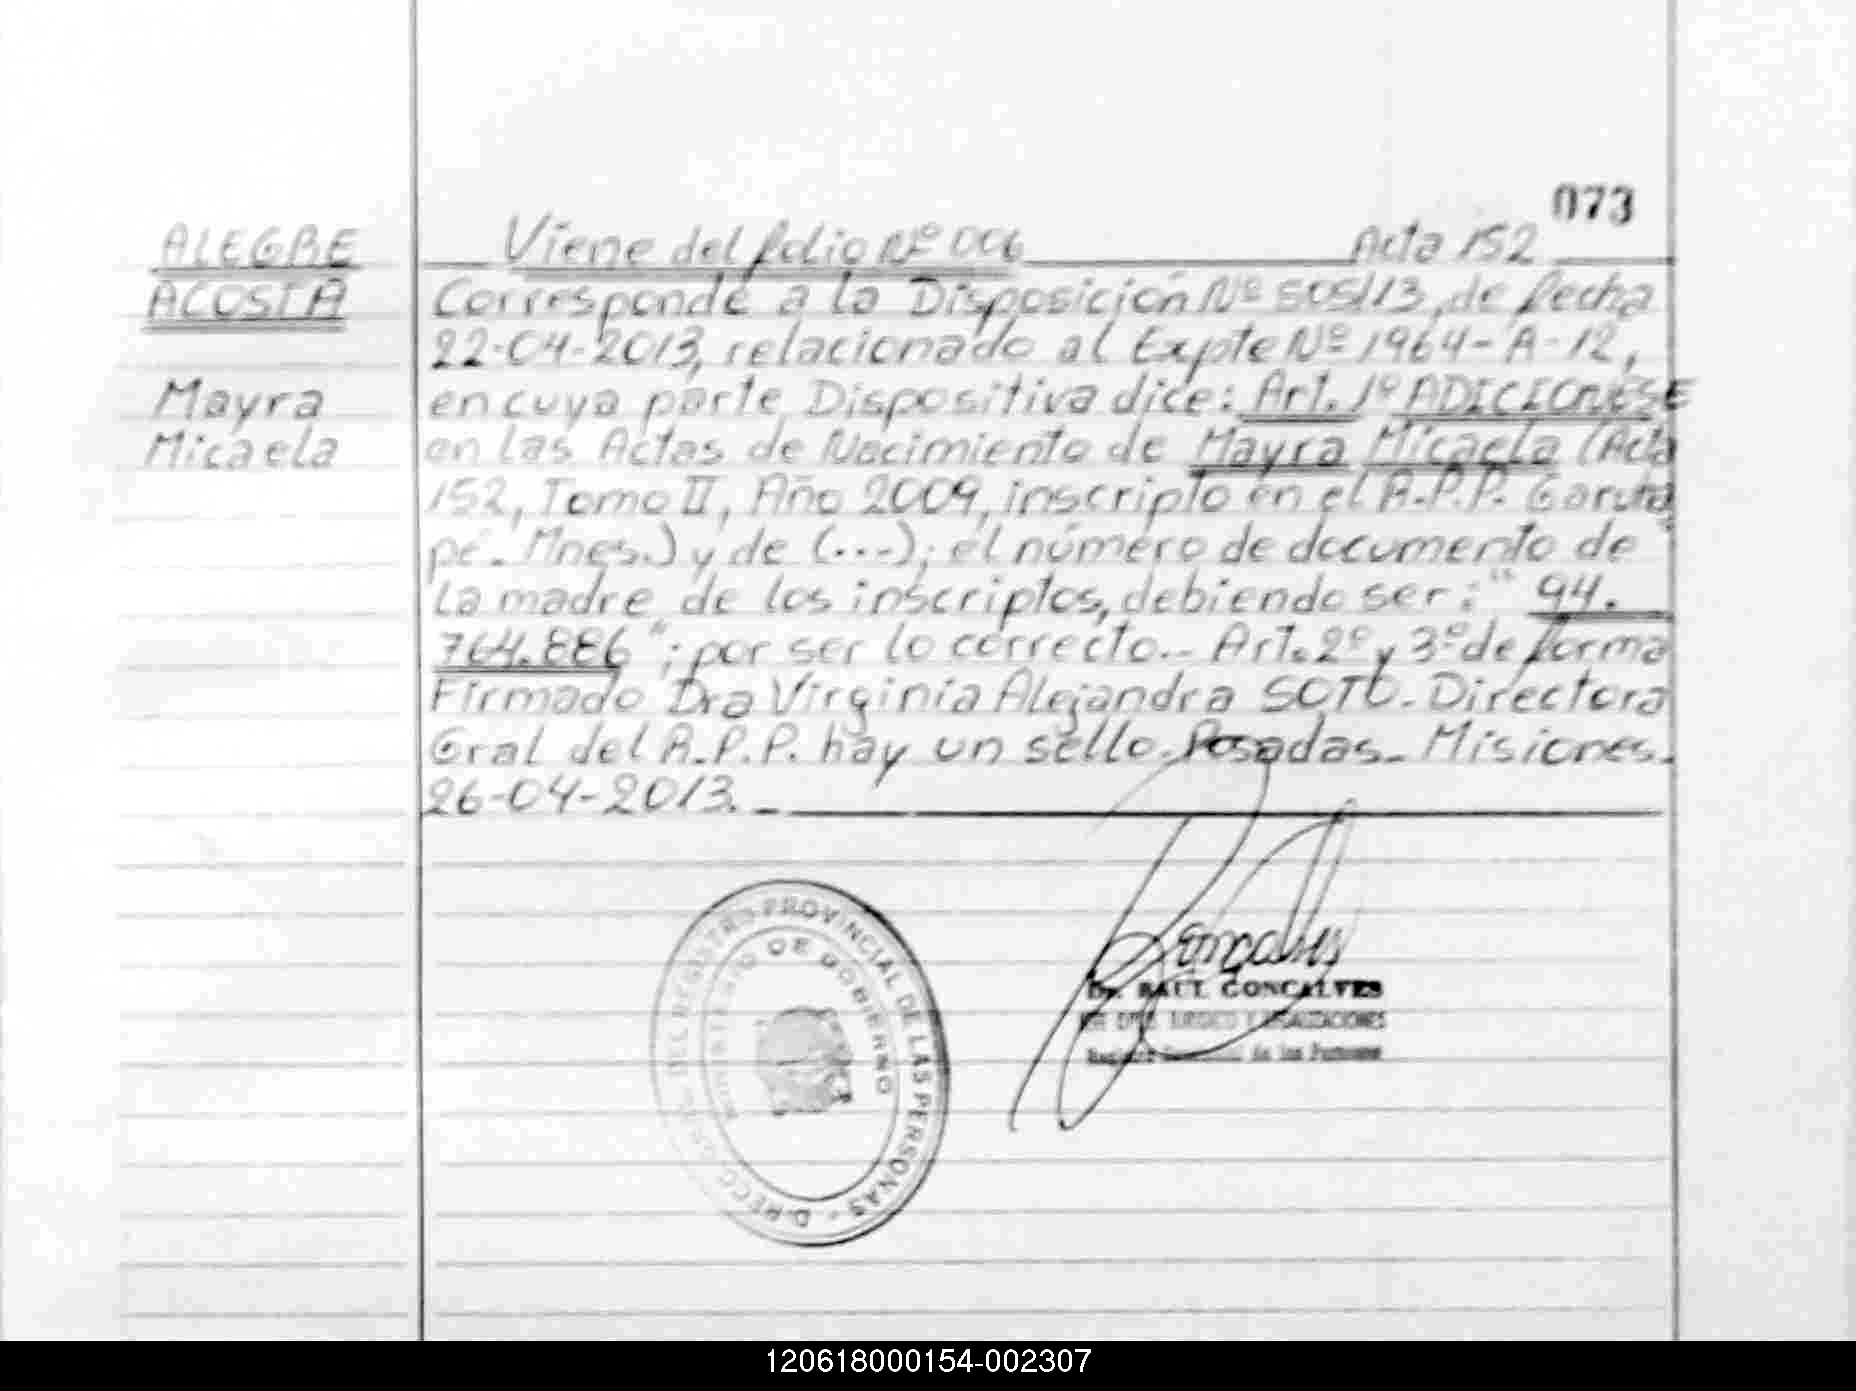 073
ALEGRE
ACOSTA
Mayra
Micaela
Viene del folio Nº 006 Acta 152
Corresponde a la Disposición Nº 505/13, de fecha
22-04-2013, relacionado al Expte Nº 1964-A-12,
en cuya parte Dispositiva dice: Art. 1º ADICIONESE
en las Actas de Nacimiento de Mayra Micaela (Acta
152, Tomo II, Año 2009, inscripto en el A.P.P. Garuha
pé. Mnes.) y de (...); el número de documento de
la madre de los inscriptos, debiendo ser: " 94.
764.886 "; por ser lo correcto.- Art. 2º y 3º de forma
Firmado Dra Virginia Alejandra SOTO. Directora
Gral del A.P.P. hay un sello. Posadas. Misiones.
26-04-2013.
DIRECC. GRAL. DEL REGISTRO PROVINCIAL DE LAS PERSONAS -
MINISTERIO DE GOBIERNO
Goncalves
Dr. RAUL GONCALVES
JURIDICO Y LEGALIZACIONES
Registro de las Personas
120618000154-002307